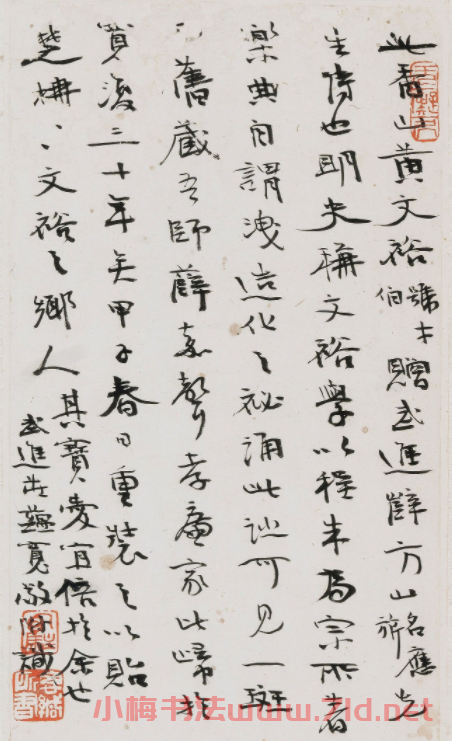 此香山黄文裕號才伯贈武進薛方山名應旂先
生詩也明史稱文裕學以程朱為宗所著
樂典自謂洩造化之祕誦此詠可見一斑
舊藏吾師薛嘉聲孝廉家比歸於
寬復三十年矣甲子春日重裝之以貽
楚構〻文裕之鄉人其寶愛宜倍於余也
武進莊蘊寬敬附識
小梅书法www.zld.net